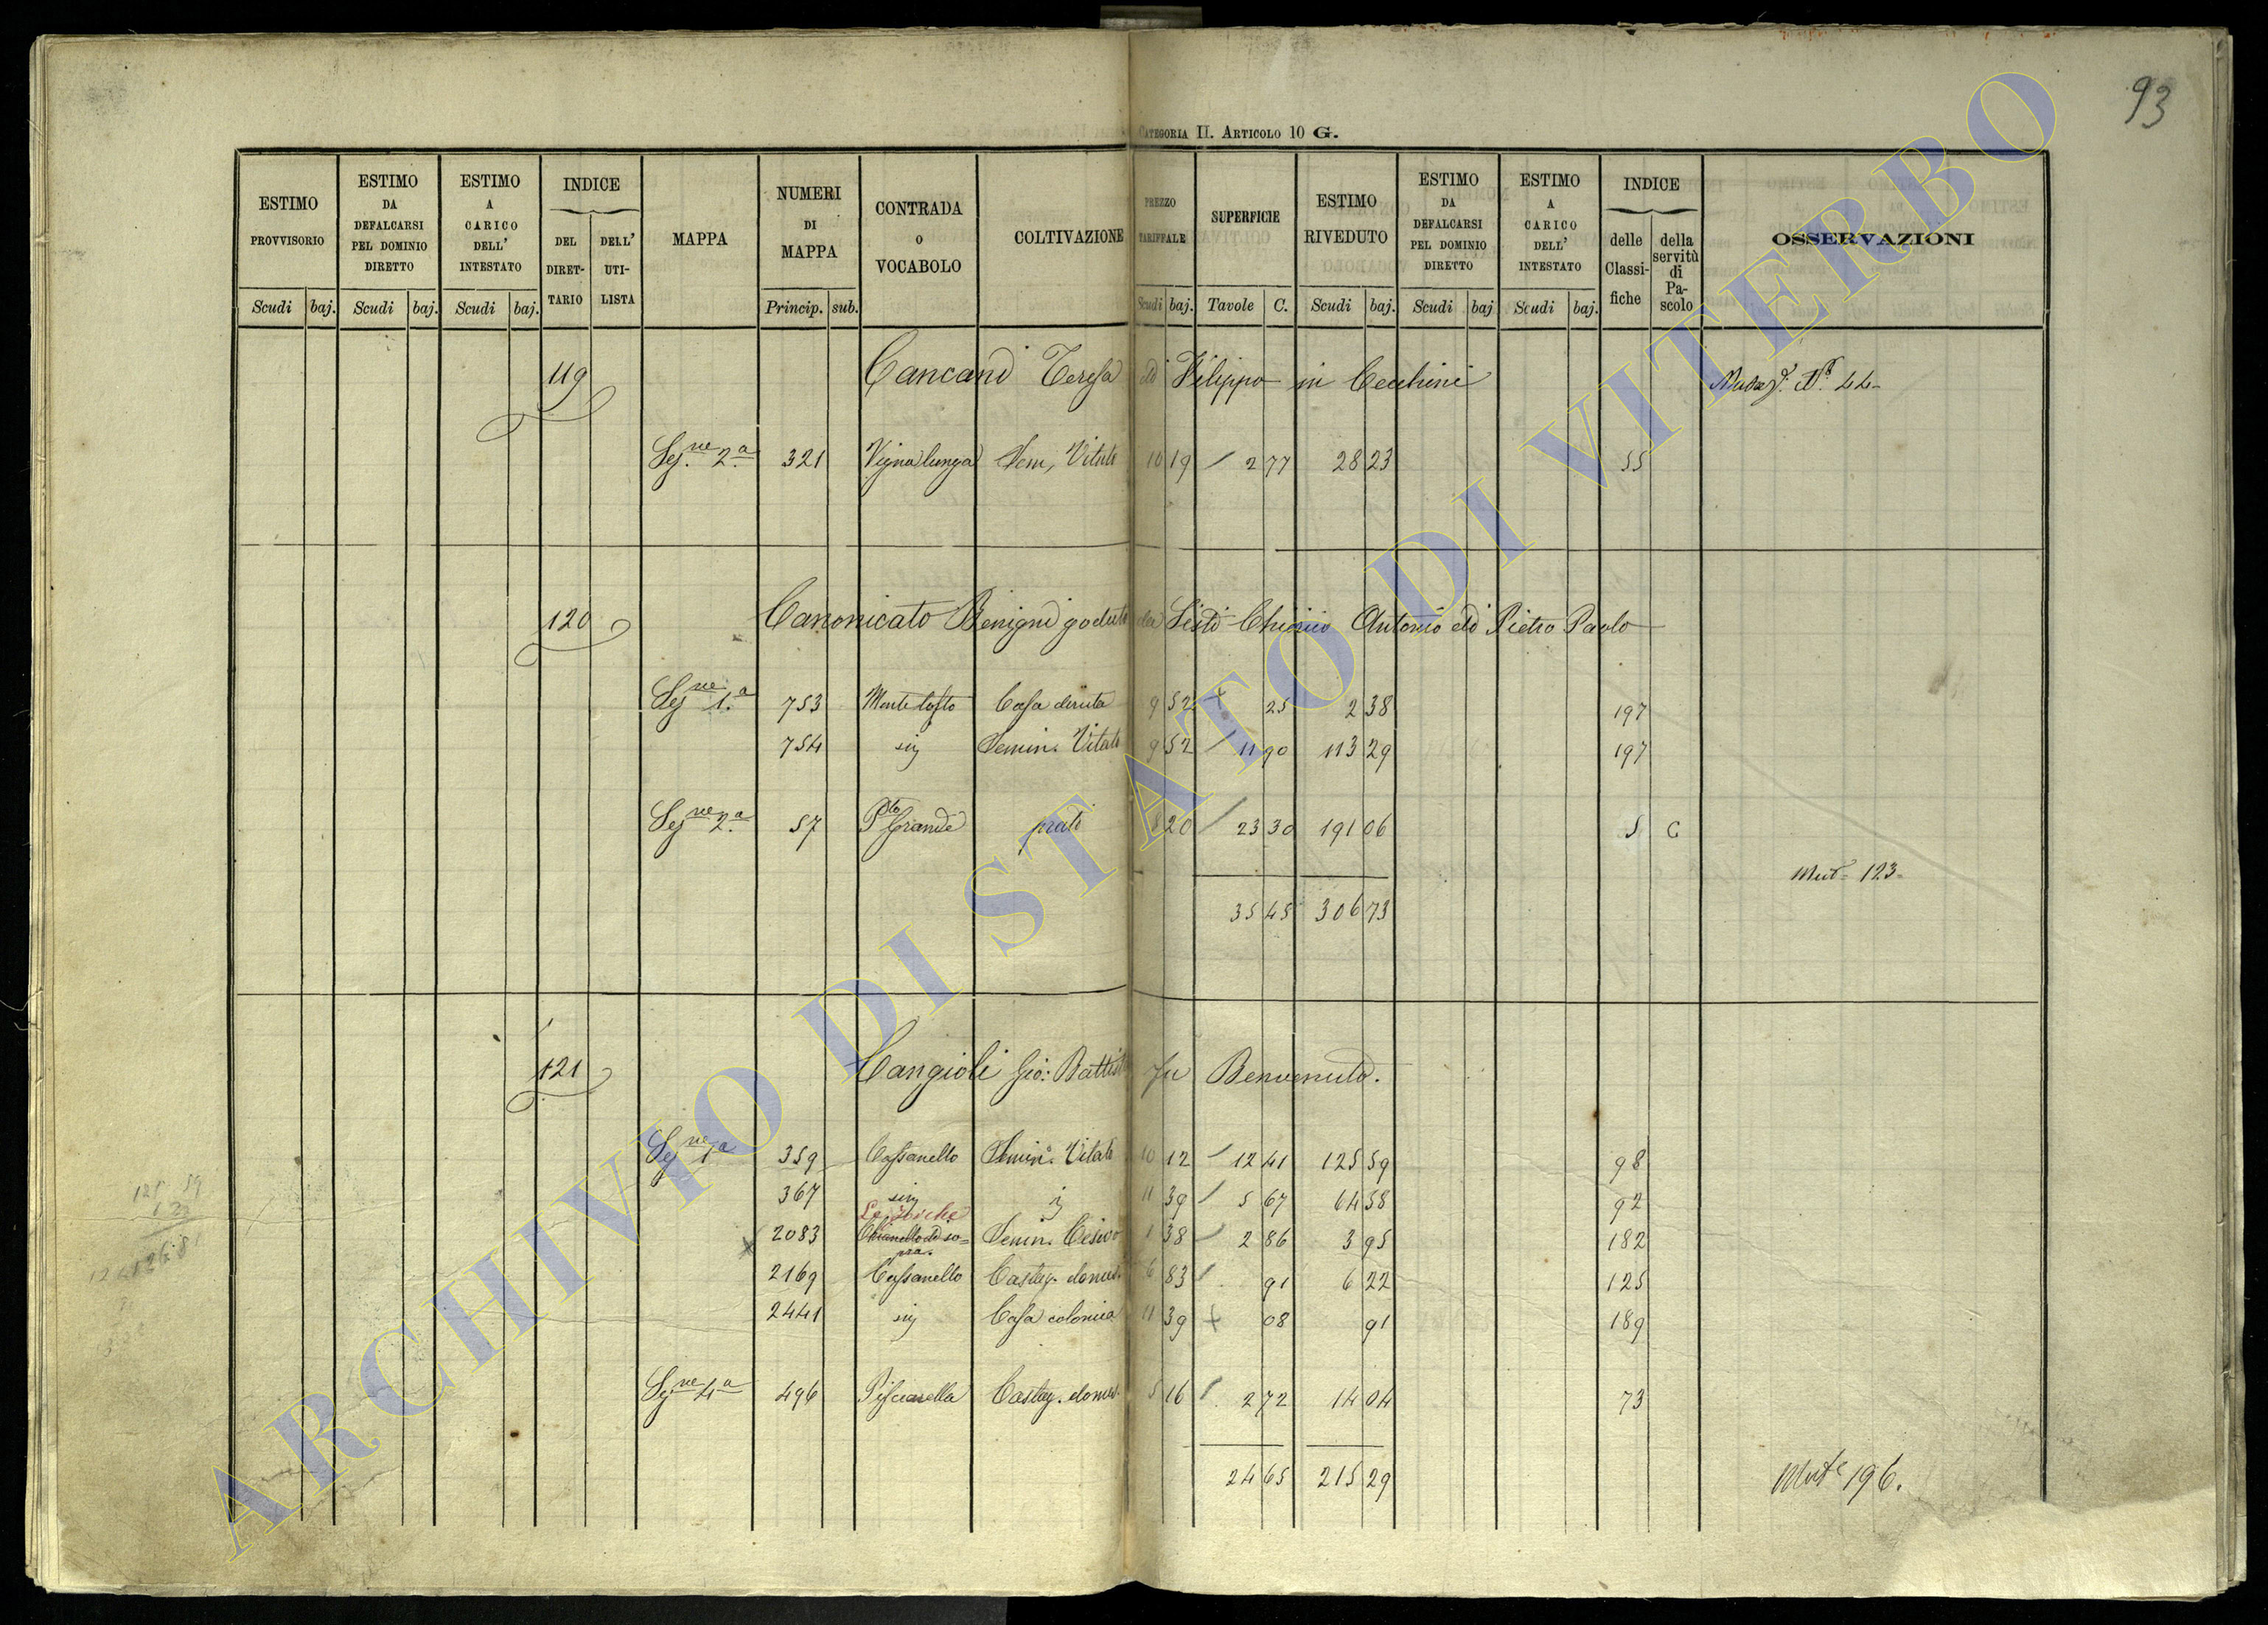 93
CATEGORIA II. ARTICOLO 10 G.
ESTIMO PROVVISORIO Scudi baj.
ESTIMO DA DEFALCARSI PEL DOMINIO DIRETTO Scudi baj.
ESTIMO A CARICO DELL' INTESTATO Scudi baj.
INDICE DEL DIRET-TARIO DELL' UTI-LISTA
MAPPA
NUMERI DI MAPPA Princip. sub.
CONTRADA O VOCABOLO
COLTIVAZIONE
PREZZO TARIFFALE Scudi baj.
SUPERFICIE Tavole C.
ESTIMO RIVEDUTO Scudi baj.
ESTIMO DA DEFALCARSI PEL DOMINIO DIRETTO Scudi baj
ESTIMO A CARICO DELL' INTESTATO Scudi baj.
INDICE delle Classi-fiche della servitù di Pa-scolo
OSSERVAZIONI
119 Cancani Teresa di Filippo in Cecchini N.° 44
Sez.ne 2.a 321 Vigna lunga Sem, Vitato 10 19 2 77 28 23 55
120 Canonicato Benigni goduto da Sisti Antonio di Pietro Paolo
Sez.ne 1.a 753 Casa diruta 9 52 25 2 38 197
754 Semin. Vitato 9 52 11 90 113 29 197
Sez.ne 2.a 57 P.to Grande prato 8 20 23 30 191 06 5 C
Mut. 123
35 45 306 73
121 Cangioli Gio: Battista fu Benvenuto.
Sez.ne 1a 359 Cassanello Semin. Vitato 10 12 12 41 125 59 98
367 11 39 5 67 64 58 92
2083 Semin. Cesivo 1 38 2 86 3 95 182
2169 Cassanello Castag. domes. 6 83 91 6 22 125
2441 Casa colonica 11 39 08 91 189
Sez.ne 4a 496 Pisciarella Castag. domes. 5 16 2 72 14 04 73
24 65 215 29
Mut.e 196.
ARCHIVIO DI STATO DI VITERBO